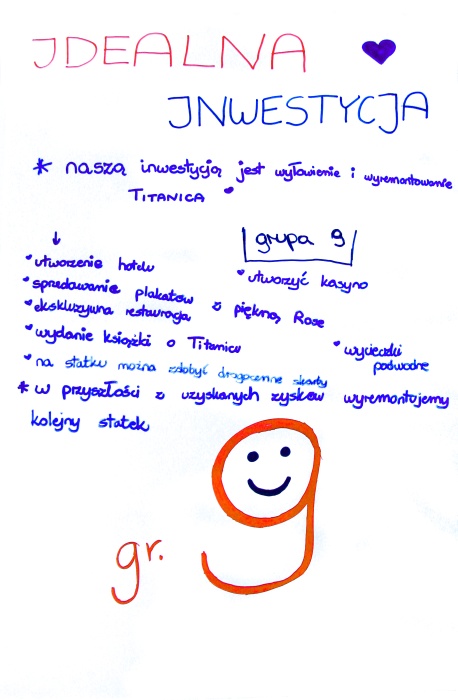 IDEALNA
INWESTYCJA
* naszą inwestycją jest wyłowienie i wyremontowanie
TITANICA
grupa 9
• utworzenie hotelu
• utworzyć kasyno
• sprzedawanie plakatów z piękną Rose
• ekskluzywna restauracja
• wydanie książki o Titanicu
• wycieczki
podwodne
• na statku można zdobyć drogocenne skarby
* w przyszłości z uzyskanych zysków wyremontujemy
kolejny statek
gr. 9